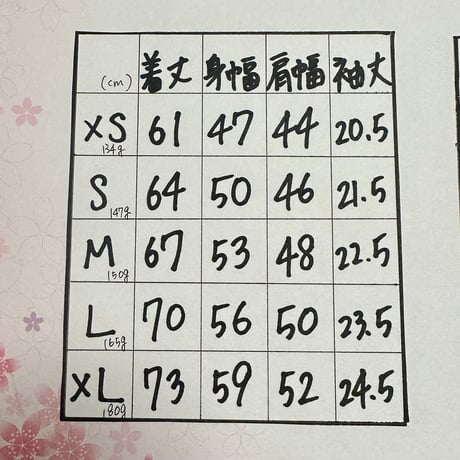 (cm) 着丈 身幅 肩幅 袖丈
XS 61 47 44 20.5
134g
S 64 50 46 21.5
147g
M 67 53 48 22.5
150g
L 70 56 50 23.5
165g
XL 73 59 52 24.5
180g